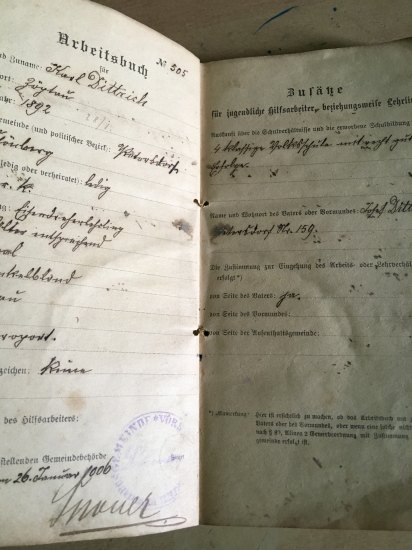 Arbeitsbuch № 305
für
und Zuname: Karl Dittrich
ort: Zöptau
jahr: 1892
gemeinde (und politischer Bezirk): Petersdorf
Schönberg
ledig oder verheiratet): ledig
r. k.
Eisendreherlehrling
Alter entsprechend
oval
dunkelblond
blau
proport.
zeichen: Keine
des Hilfsarbeiters:
stellenden Gemeindebehörde
am 26. Januar 1906
Zusätze
für jugendliche Hilfsarbeiter, beziehungsweise Lehrli
Auskunft über die Schulverhältnisse und die erworbene Schulbildung
4 klassige Volksschule mit recht gut
Erfolge.
Name und Wohnort des Vaters oder Vormundes: Josef Ditt
Petersdorf Nr. 159.
Die Zustimmung zur Eingehung des Arbeits- oder Lehrverhäl
erfolgt *)
von Seite des Vaters: ja.
von Seite des Vormundes:
von Seite der Aufenthaltsgemeinde:
*) Anmerkung: Hier ist ersichtlich zu machen, ob das Arbeitsbuch mit
Vaters oder des Vormundes, oder wenn eine solche nicht
nach § 80, Alinea 2 Gewerbeordnung mit Zustimmung
gemeinde erfolgt ist.